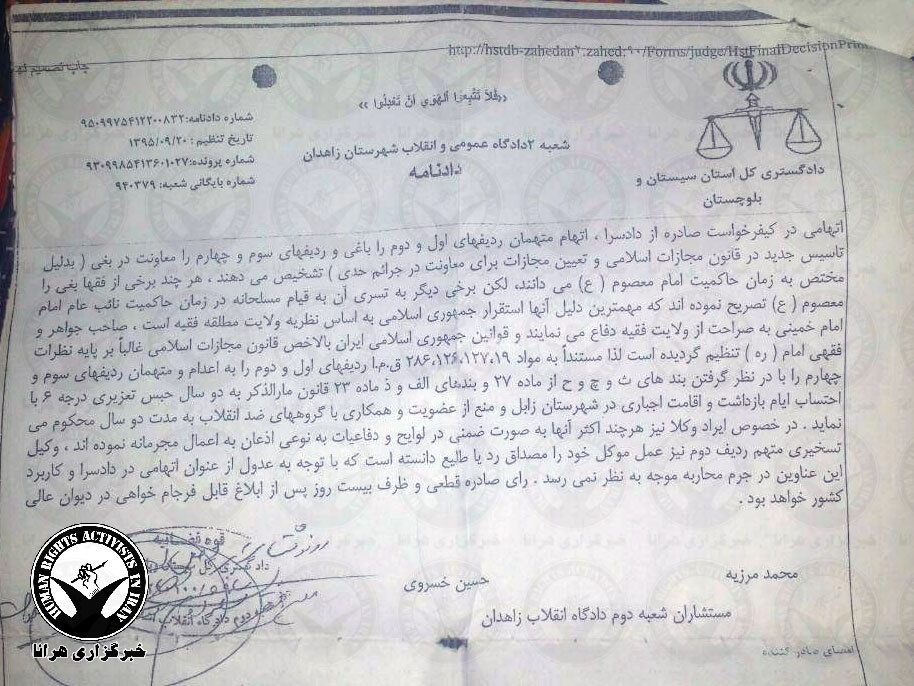 http://hstdb-zahedan2.zahed:90/Forms/judge/HstFinalDecisionPrin
چاپ تصمیم نه
«فَلاَ تَتَّبِعُوا الْهَوَی أَنْ تَعْدِلُوا»
شماره دادنامه:۹۵۰۹۹۷۵۴۱۲۲۰۰۸۳۲
تاریخ تنظیم : ۱۳۹۵/۰۹/۲۰
شماره پرونده:۹۳۰۹۹۸۵۴۱۳۶۰۱۰۲۷
شماره بایگانی شعبه: ۹۴۰۳۷۹
شعبه ۲دادگاه عمومی و انقلاب شهرستان زاهدان
دادنامه
دادگستری کل استان سیستان و
بلوچستان
اتهامی در کیفرخواست صادره از دادسرا ، اتهام متهمان ردیفهای اول و دوم را باغی و ردیفهای سوم و چهارم را معاونت در بغی ( بدلیل
تاسیس جدید در قانون مجازات اسلامی و تعیین مجازات برای معاونت در جرائم حدی ) تشخیص می دهند ، هر چند برخی از فقها بغی را
مختص به زمان حاکمیت امام معصوم ( ع) می دانند، لکن برخی دیگر به تسری آن به قیام مسلحانه در زمان حاکمیت نائب عام امام
معصوم ( ع) تصریح نموده اند که مهمترین دلیل آنها استقرار جمهوری اسلامی به اساس نظریه ولایت مطلقه فقیه است ، صاحب جواهر و
امام خمینی به صراحت از ولایت فقیه دفاع می نمایند و قوانین جمهوری اسلامی ایران بالاخص قانون مجازات اسلامی غالباً بر پایه نظرات
فقهی امام ( ره ) تنظیم گردیده است لذا مستنداً به مواد ۲۸۶،۱۲۶،۱۲۷،۱۹ ق.م.ا ردیفهای اول و دوم را به اعدام و متهمان ردیفهای سوم و
چهارم را با در نظر گرفتن بند های ث و چ و ح از ماده ۲۷ و بندهای الف و ذ ماده ۲۳ قانون مارالذکر به دو سال حبس تعزیری درجه ۶ با
احتساب ایام بازداشت و اقامت اجباری در شهرستان زابل و منع از عضویت و همکاری با گروههای ضد انقلاب به مدت دو سال محکوم می
نماید . در خصوص ایراد وکلا نیز هرچند اکثر آنها به صورت ضمنی در لوایح و دفاعیات به نوعی اذعان به اعمال مجرمانه نموده اند ، وکیل
تسخیری متهم ردیف دوم نیز عمل موکل خود را مصداق رد یا طلیع دانسته است که با توجه به عدول از عنوان اتهامی در دادسرا و کاربرد
این عناوین در جرم محاربه موجه به نظر نمی رسد . رای صادره قطعی و ظرف بیست روز پس از ابلاغ قابل فرجام خواهی در دیوان عالی
کشور خواهد بود .
قوه قضائیه
محمد مرزیه
حسین خسروی
مستشاران شعبه دوم دادگاه انقلاب زاهدان
امضای صادر کننده
HUMAN RIGHTS ACTIVISTS IN IRAN
خبرگزاری هرانا